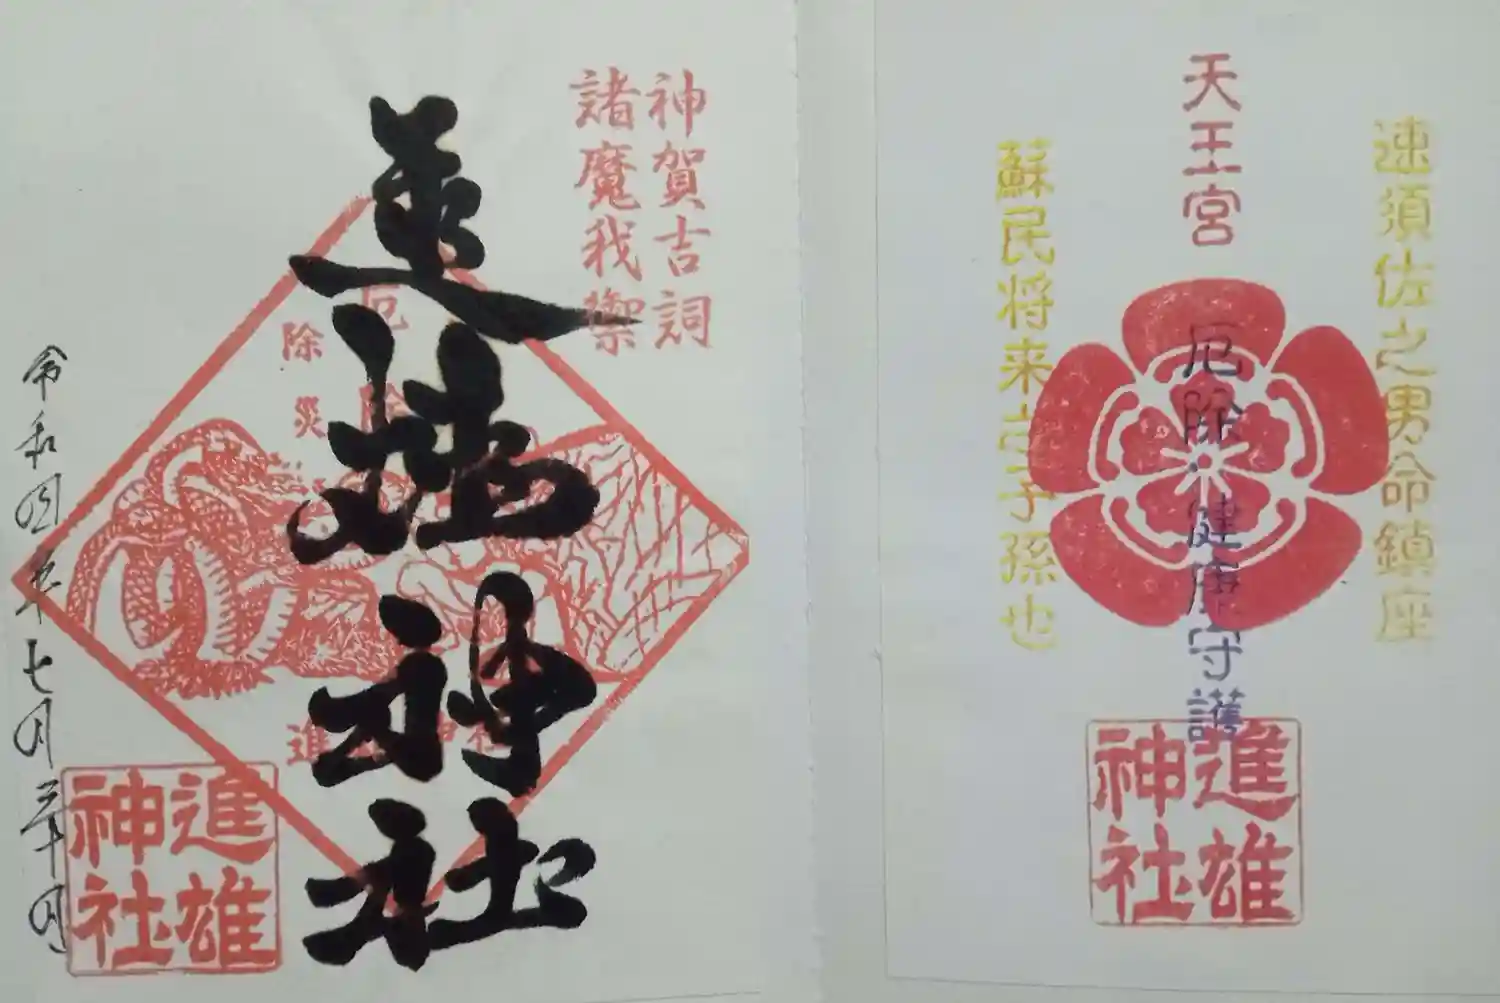 神賀吉詞
諸魔我禦
進雄神社
厄除
除災
進雄神社
進雄
神社
令和四年七月三十日
速須佐之男命鎮座
天王宮
厄除・健康守護
蘇民将来之子孫也
進雄
神社